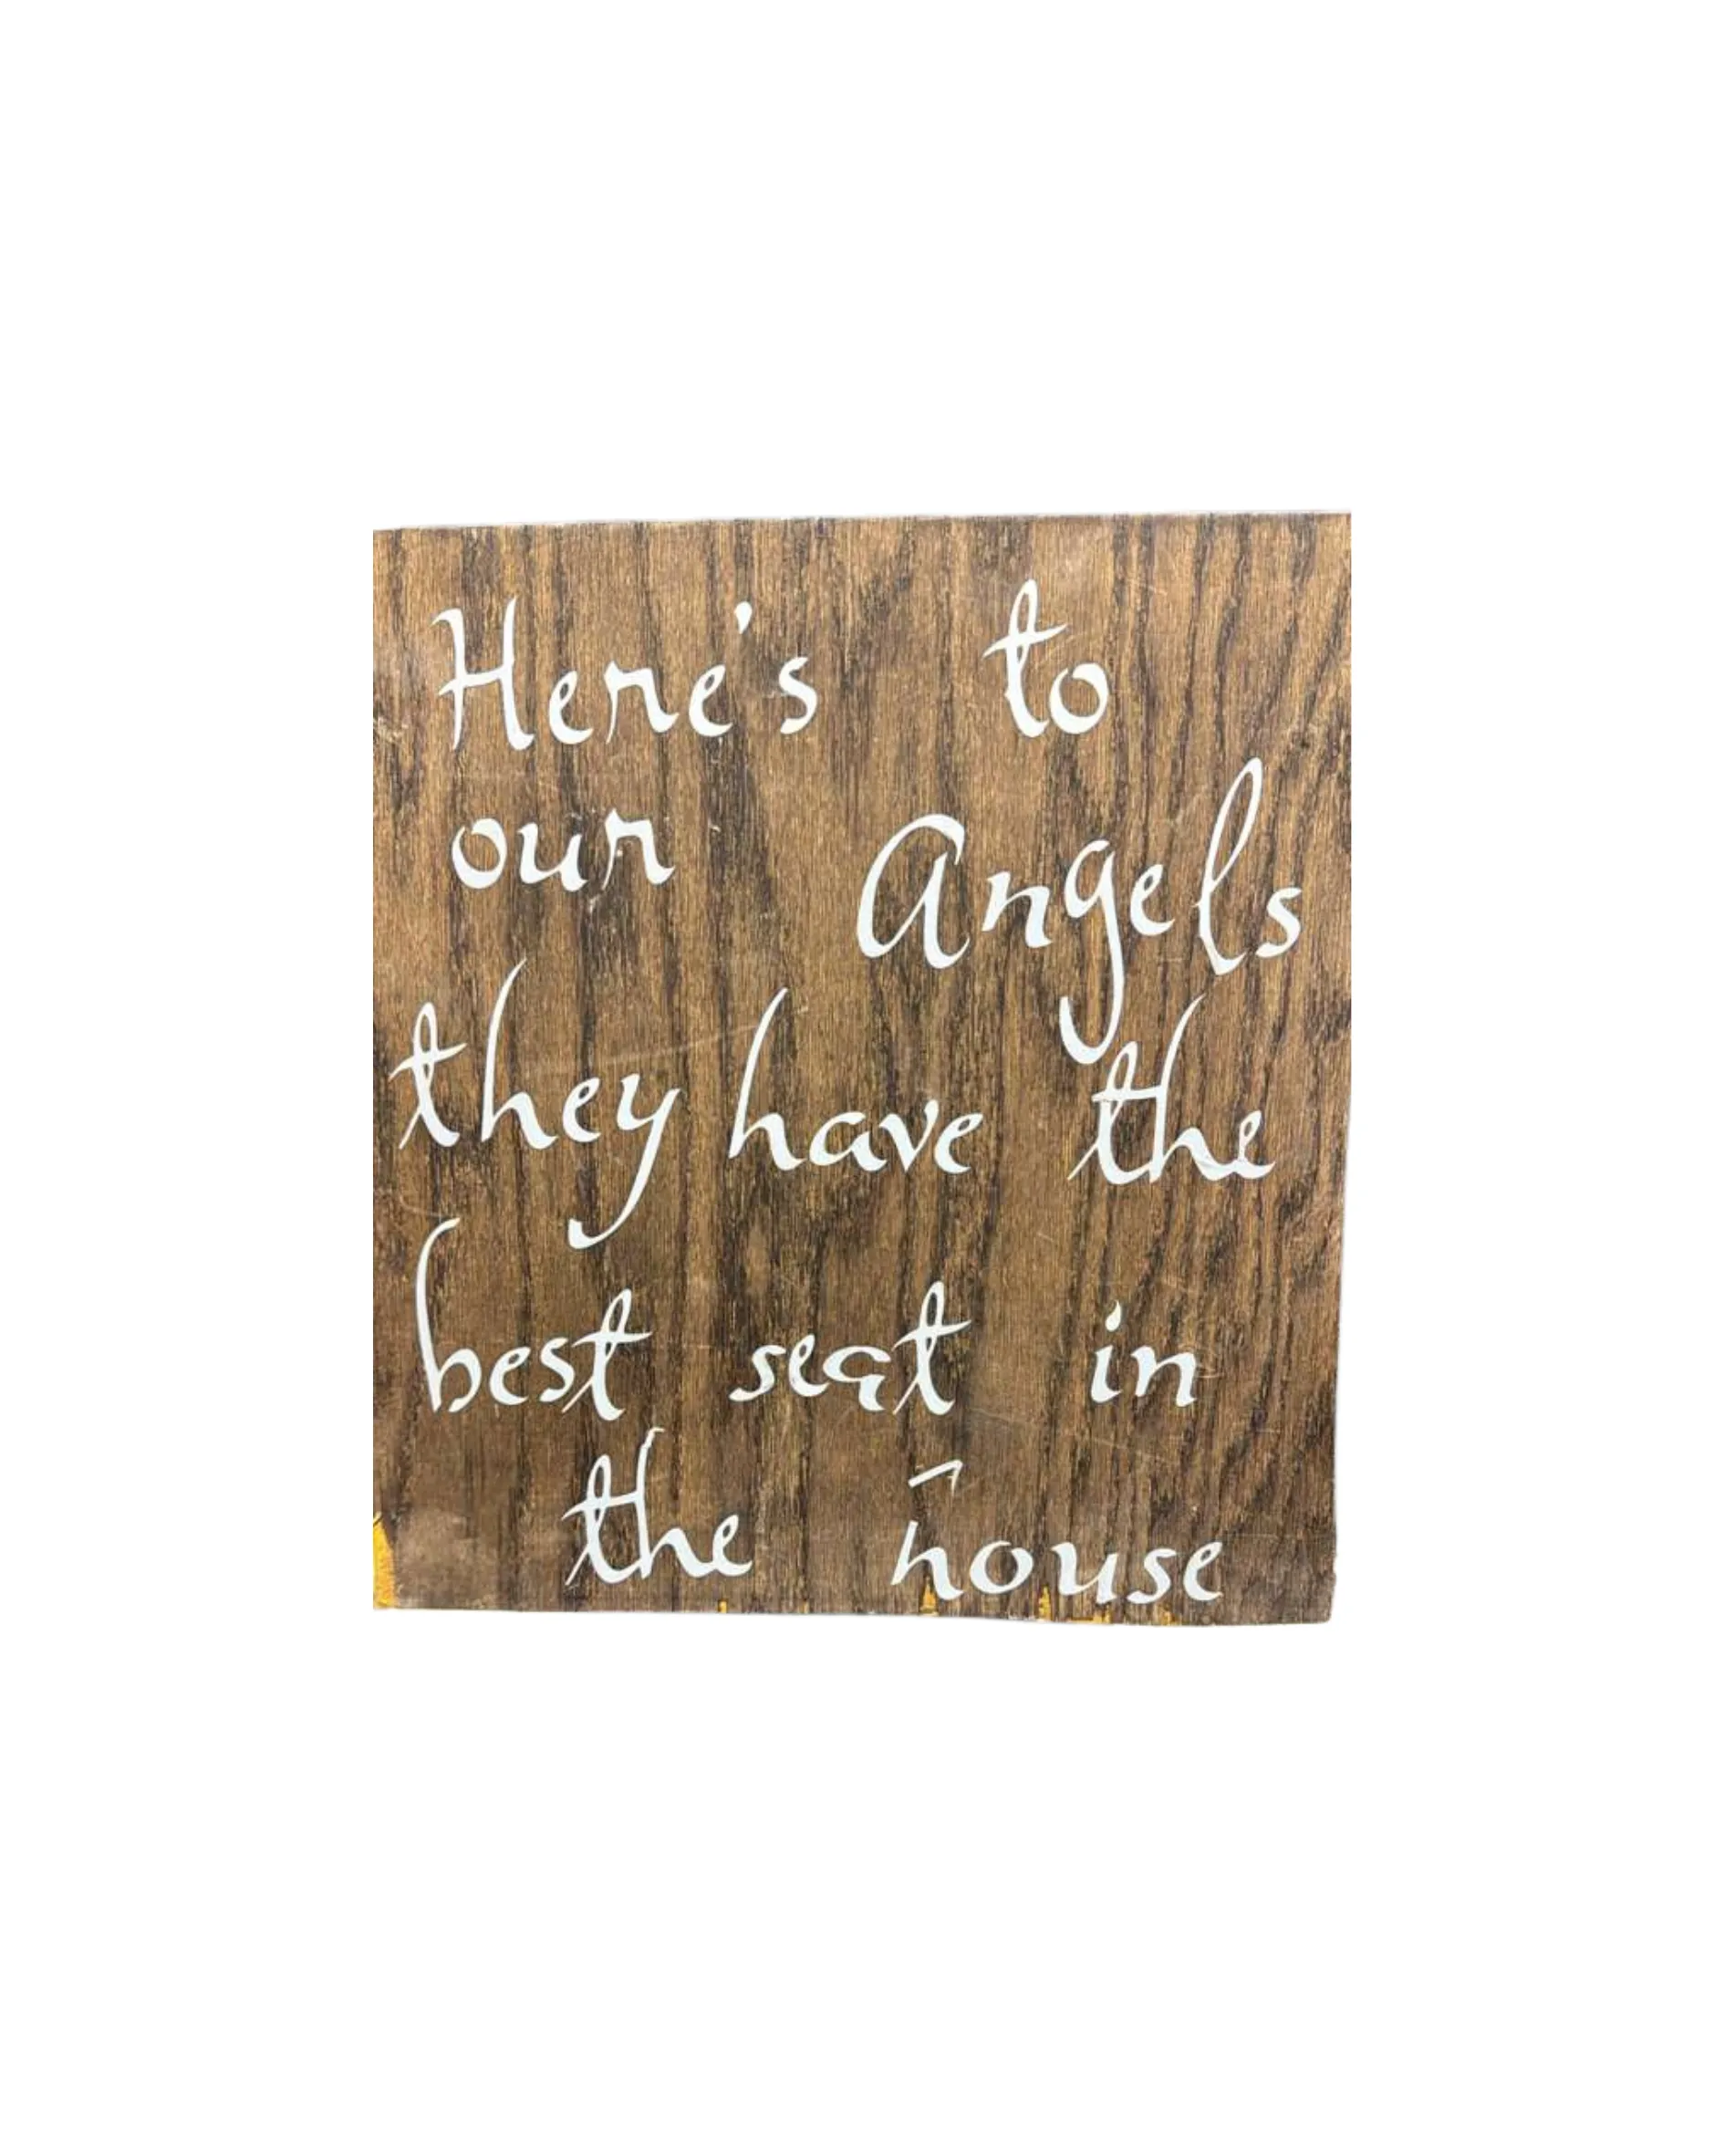 Here's to
our Angels
they have the
best seat in
the house